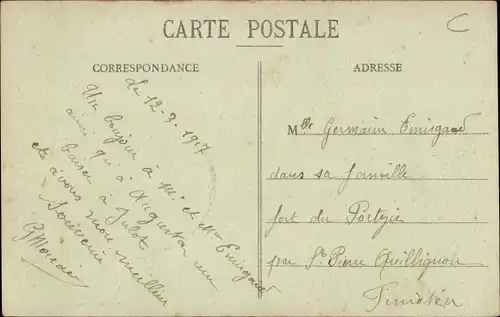 CARTE POSTALE
C
CORRESPONDANCE
Le 12-9-1917
Un bonjour à Mr et Mme Emirgand
ainsi qu'à Augustan un
baiser à Julot
et à vous mon meilleur
souvenir
GMoreau
ADRESSE
Mlle Germaine Emirgand
dans sa famille
fort du Portzic
par St Pierre Quillignon
Finistère